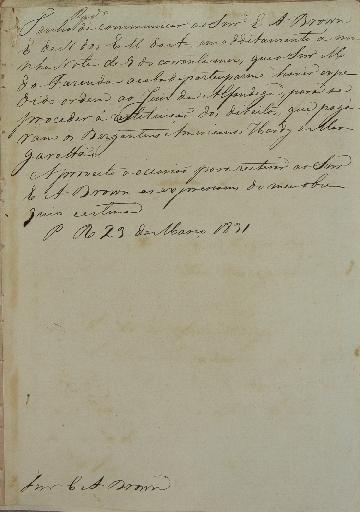 Tenho de communicar ao Snr E A Brown
E de N dos E U do A, em additamento a mi
nha Nota de 9 do corrente mez, que o Snr M
da Fazenda acaba de participar haver expe
dido ordem ao Juiz da Alfandega, para se
proceder a restituição dos direitos, que paga
rão os Bergantins Americanos Hardy e Mar
garetha.
Aproveito a occasião para reiterar ao Snr
E A Brown as expressoens do meu obse
quio e estima
P R 23 de Março 1831
Snr E A Brown